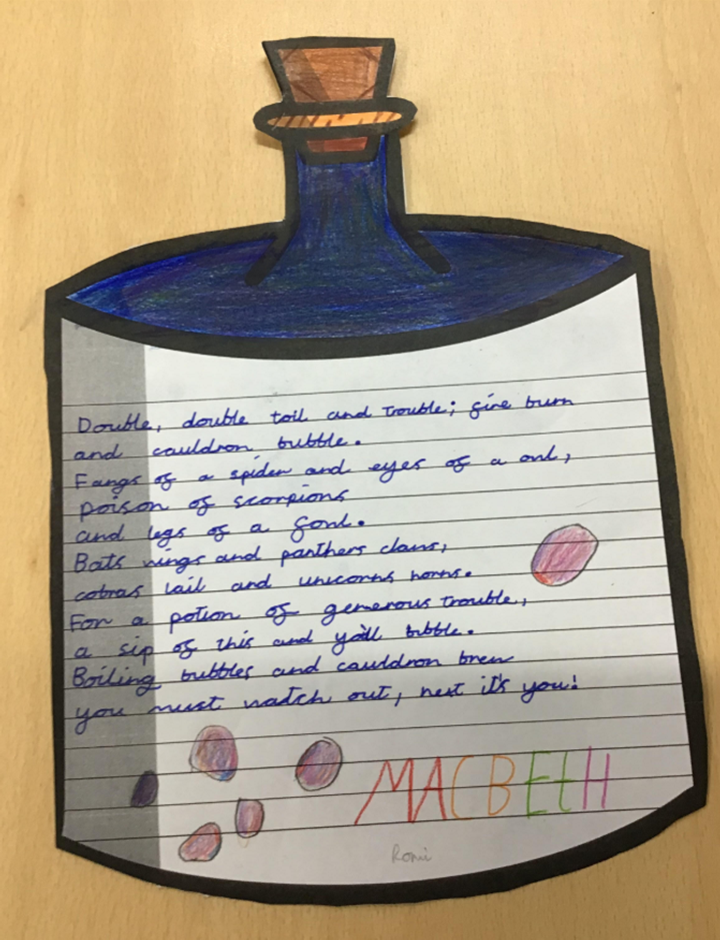 Double, double toil and trouble; fire burn
and cauldron bubble.
Fangs of a spider and eyes of a owl,
poison of scorpions
and legs of a fowl.
Bats wings and panthers claws,
cobras tail and unicorns horns.
For a potion of generous trouble,
a sip of this and yall bubble.
Boiling bubbles and cauldron brew
you must watch out, next it's you!
MACBEtH
Romi